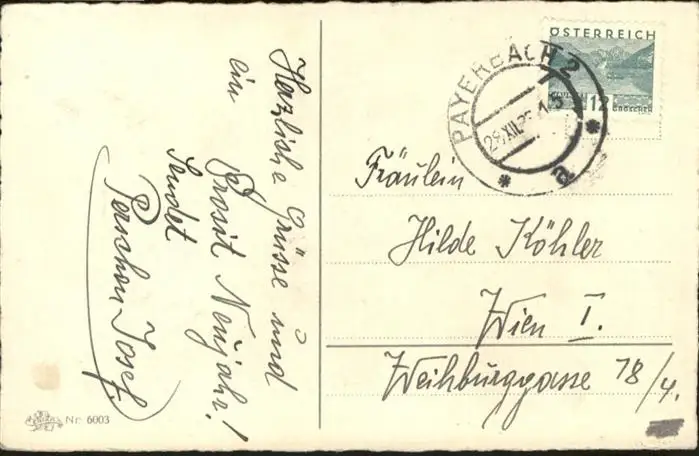 Herzliche Grüsse und
ein Prosit Neujahr!
Sendet
Josef
Nr. 6003
ÖSTERREICH
12
GROSCHEN
PAYERBACH 2
29.XII.
a
Fräulein
Hilde Köhler
Wien I.
Weihburggasse 18/4.